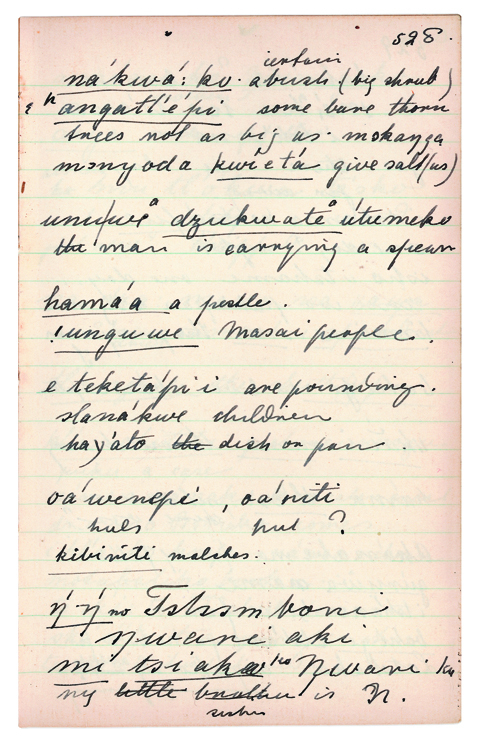 528.
certain
nákwá: ko. a bush (big shrub)
angatl'épi some bare thorn
trees not as big as mokanga
monyoda kwi'etá give salt (us)
dzukwate útumeko
the man is carrying a spear
hamáa a pestle.
!unguwe Masai people.
e teketápíi are pounding.
slanákwe children
hayáto the dish or pan.
oá'wenepi, oá'niti
huts hut ?
kibiriti matches.
ý-ý no Tshsmboni
ŋwani aki
mi tsiaka Nwari
my little brother is N.
sister